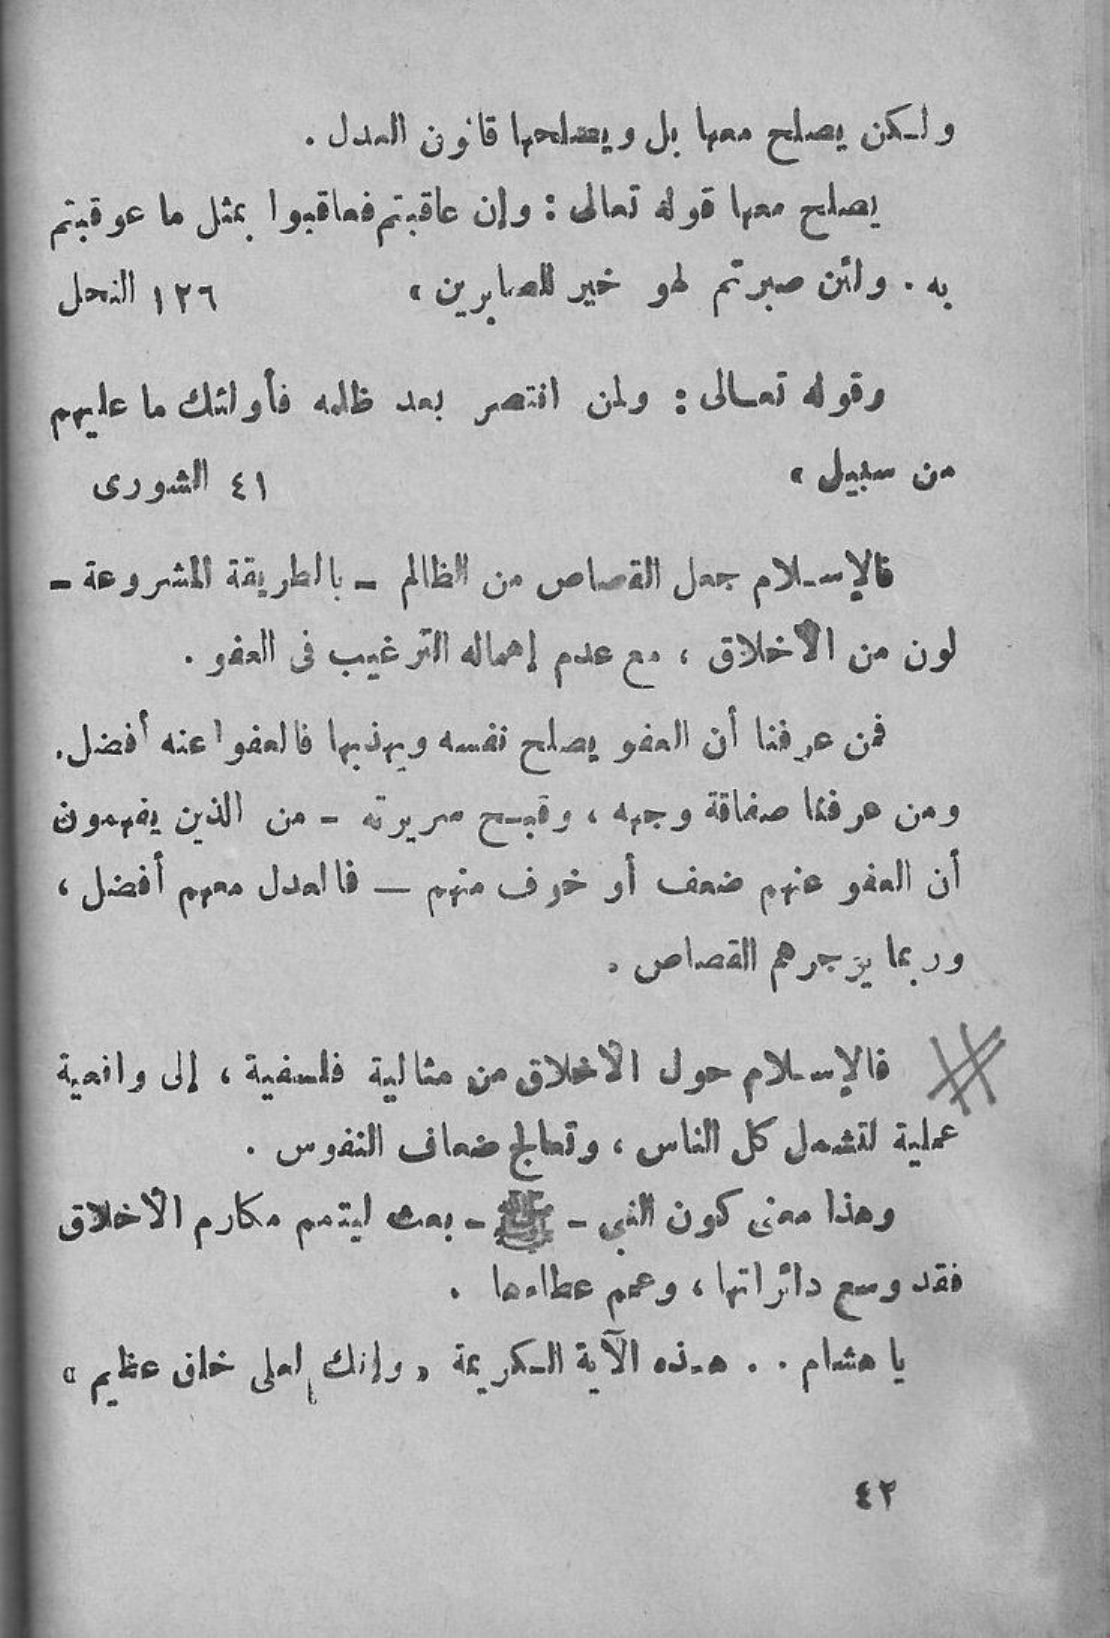 ولكن يصلح معها بل ويصلحها قانون العدل .
يصلح معها قوله تعالى : وإن عاقبتم فعاقبوا بمثل ما عوقبتم
به . ولئن صبرتم لهو خير للصابرين »
١٢٦ النحل
وقوله تعالى : ولمن انتصر بعد ظلمه فأولئك ما عليهم
من سبيل »
٤١ الشورى
فالإسلام جعل القصاص من الظالم - بالطريقة المشروعة -
لون من الأخلاق ، مع عدم إهماله الترغيب فى العفو .
فمن عرفنا أن العفو يصلح نفسه ويهذبها فالعفوا عنه أفضل .
ومن عرفنا صفاقة وجهه ، وقبح سريرته - من الذين يفهمون
أن العفو عنهم ضعف أو خوف منهم — فالعدل معهم أفضل ،
وربما يزجرهم القصاص .
فالإسلام حول الأخلاق من مثالية فلسفية ، إلى واقعية
عملية لتشمل كل الناس ، وتعالج ضعاف النفوس .
وهذا معنى كون النبى - ﷺ - بعث ليتمم مكارم الأخلاق
فقد وسع دائراتها ، وعمم عطاءها .
يا هشام . . هذه الآية الكريمة « وإنك لعلى خلق عظيم »
٤٢